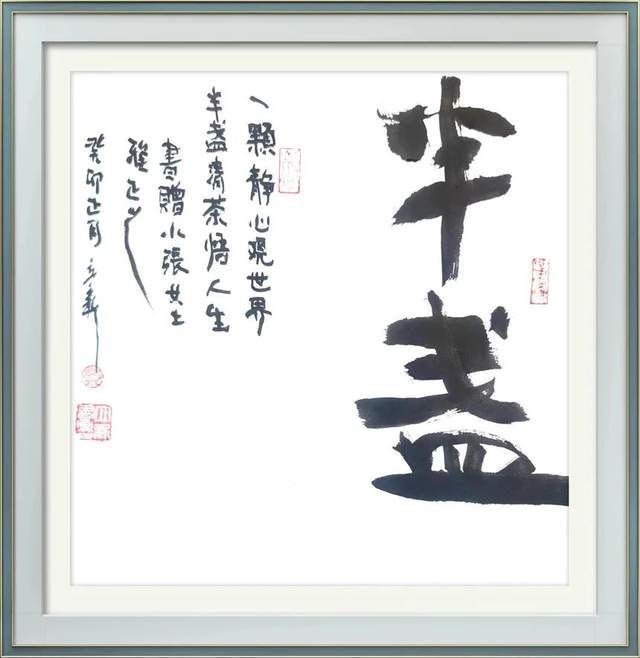 半盏
一顆静心观世界
半盏清茶悟人生
書贈小張女士
雅正
癸卯正月